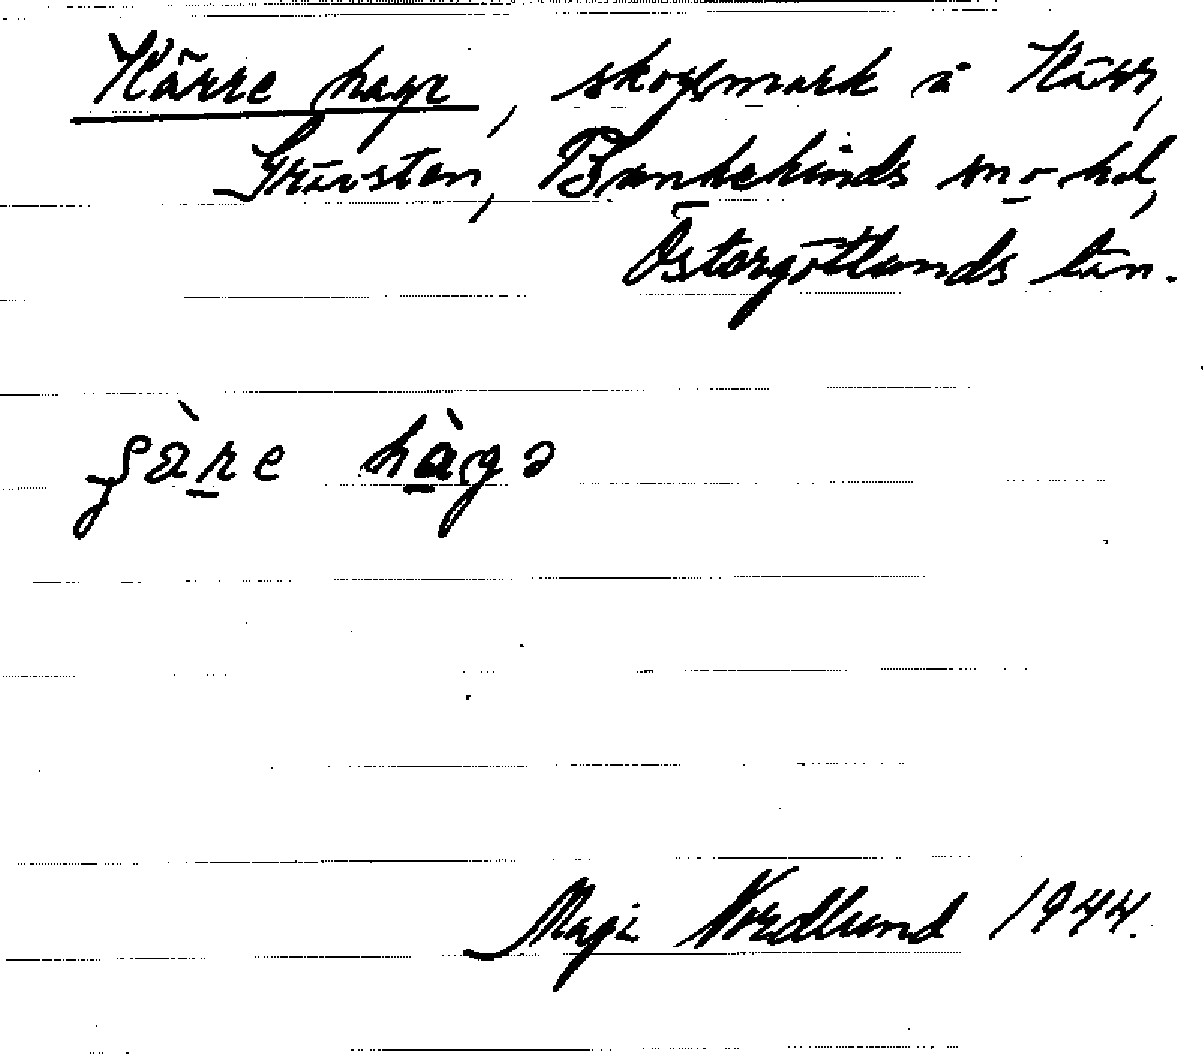 Kärre hage, skogsmark å Kärr,
Grävsten, Bankekinds sn o hd,
Östergötlands län.
hàgə
Maji Nordlund 1944.